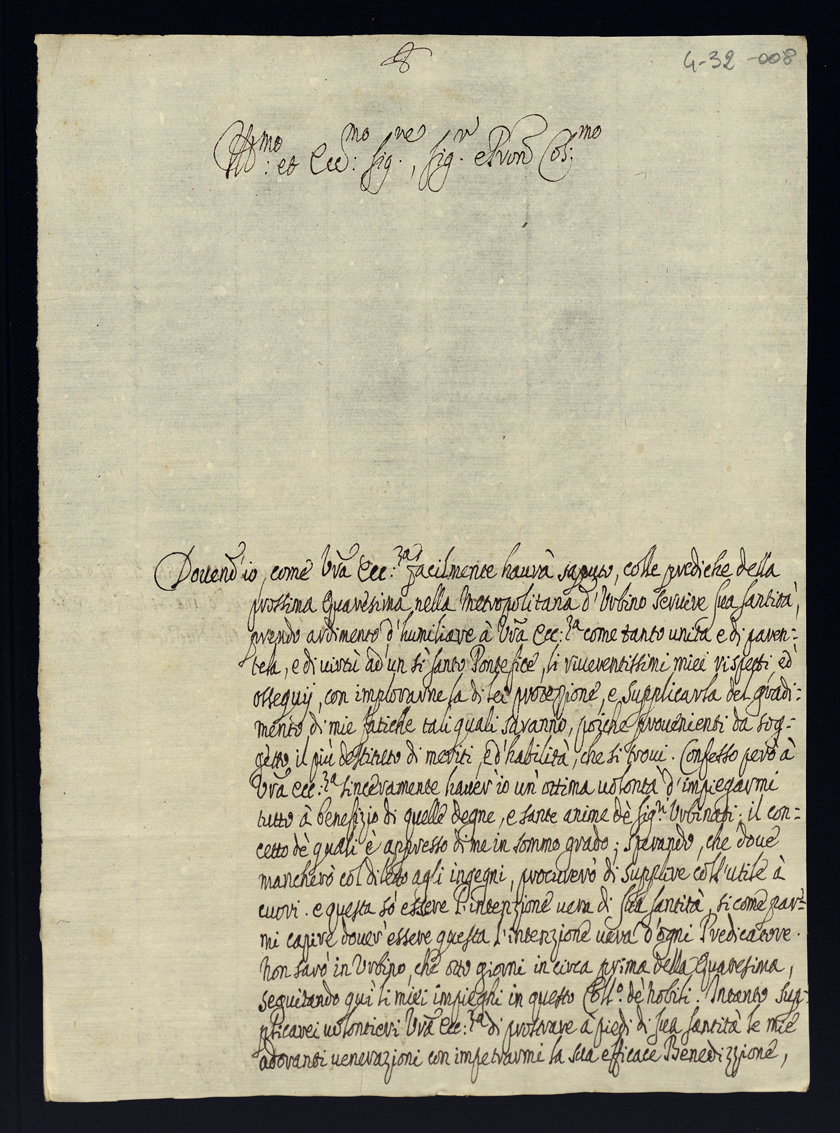 4-32-008
Ill.mo et Ecc.mo Sig.re, Sig.r e Pron Cos:mo
Douend'io, come Vrã Ecc:za facilmente haurà saputo, colle prediche della
prossima Quaresima nella Metropolitana d'Urbino seruire Sua Santità,
prendo ardimento d'humiliare à Vrã Ecc:za come tanto unita e di paren=
tela, e di uirtù ad un sì Santo Pontefice, li riuerentissimi miei rispetti ed
ossequij, con implorarne la di lei protezzione, e supplicarla del gradi=
mento di mie fatiche tali quali saranno, poiche prouenienti da sog=
getto il più destituto di meriti, ed habilità, che si troui. Confesso però à
Vrã Ecc:za sinceramente hauer'io un'ottima uolontà d'impiegarmi
tutto à benefizio di quelle degne, e sante anime de' Sig.ri Urbinati, il con=
cetto de' quali è appresso di me in sommo grado; sperando, che doue
mancherò col diletto agli ingegni, procurerò di supplire coll'utile à
cuori. e questa sò essere l'intenzione uera di Sua Santità, si come par=
mi capire douer'essere questa l'intenzione uera d'ogni Predicatore.
Non sarò in Urbino, che otto giorni in circa prima della Quaresima,
seguitando quì li miei impieghi in questo Coll.o de' Nobili. Intanto sup=
plicarei uolontieri Vrã Ecc:za di protrare à piedi di Sua Santità le mie
adoranti uenerazioni con impetrarmi la sua efficace Benedizzione,